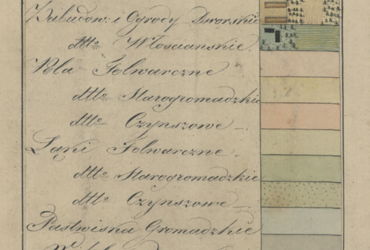 Zabudow: i Ogrody Dworskie
dtto Włosciańskie
Pola Folwarczne
dtto Starogromadzkie
dtto Czynszowe
Łąki Folwarczne
dtto Starogromadzkie
dtto Czynszowe
Pastwiska Gromadzkie